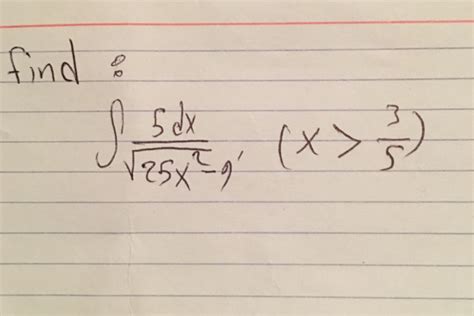 find :
∫ 5dx / √25x² - 9, (x > 3/5)